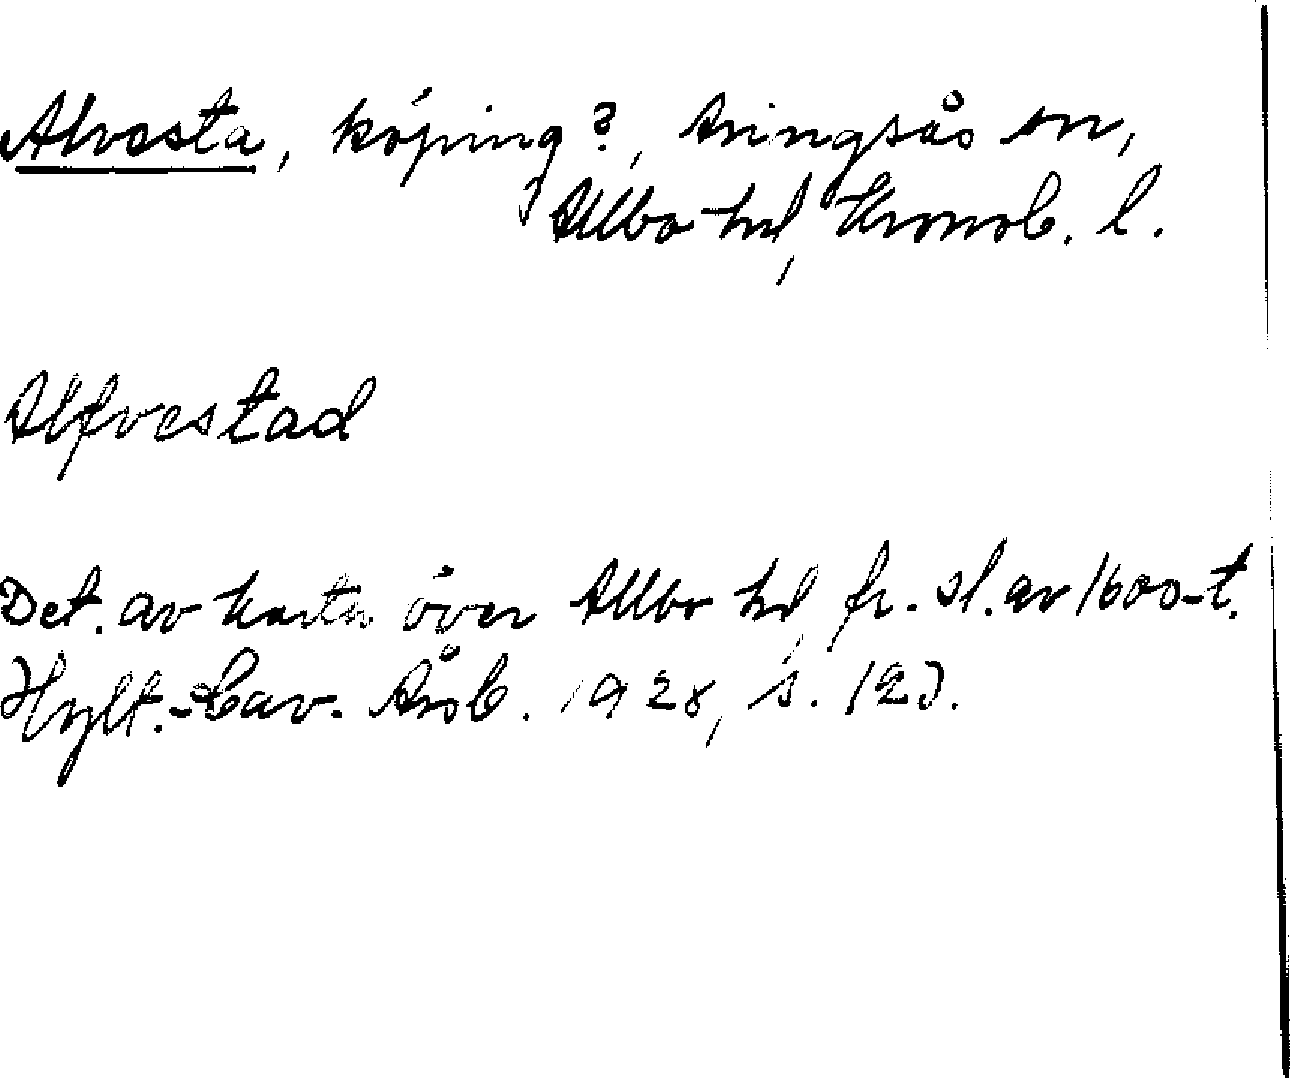 Alvesta, köping?, Aringsås sn,
Allbo hd, Kronob. l.
Alfvestad
Det. av karta över Allbo hd, fr. sl. av 1600-t.
Hylt.-Cav. Årsb. 1928, s.